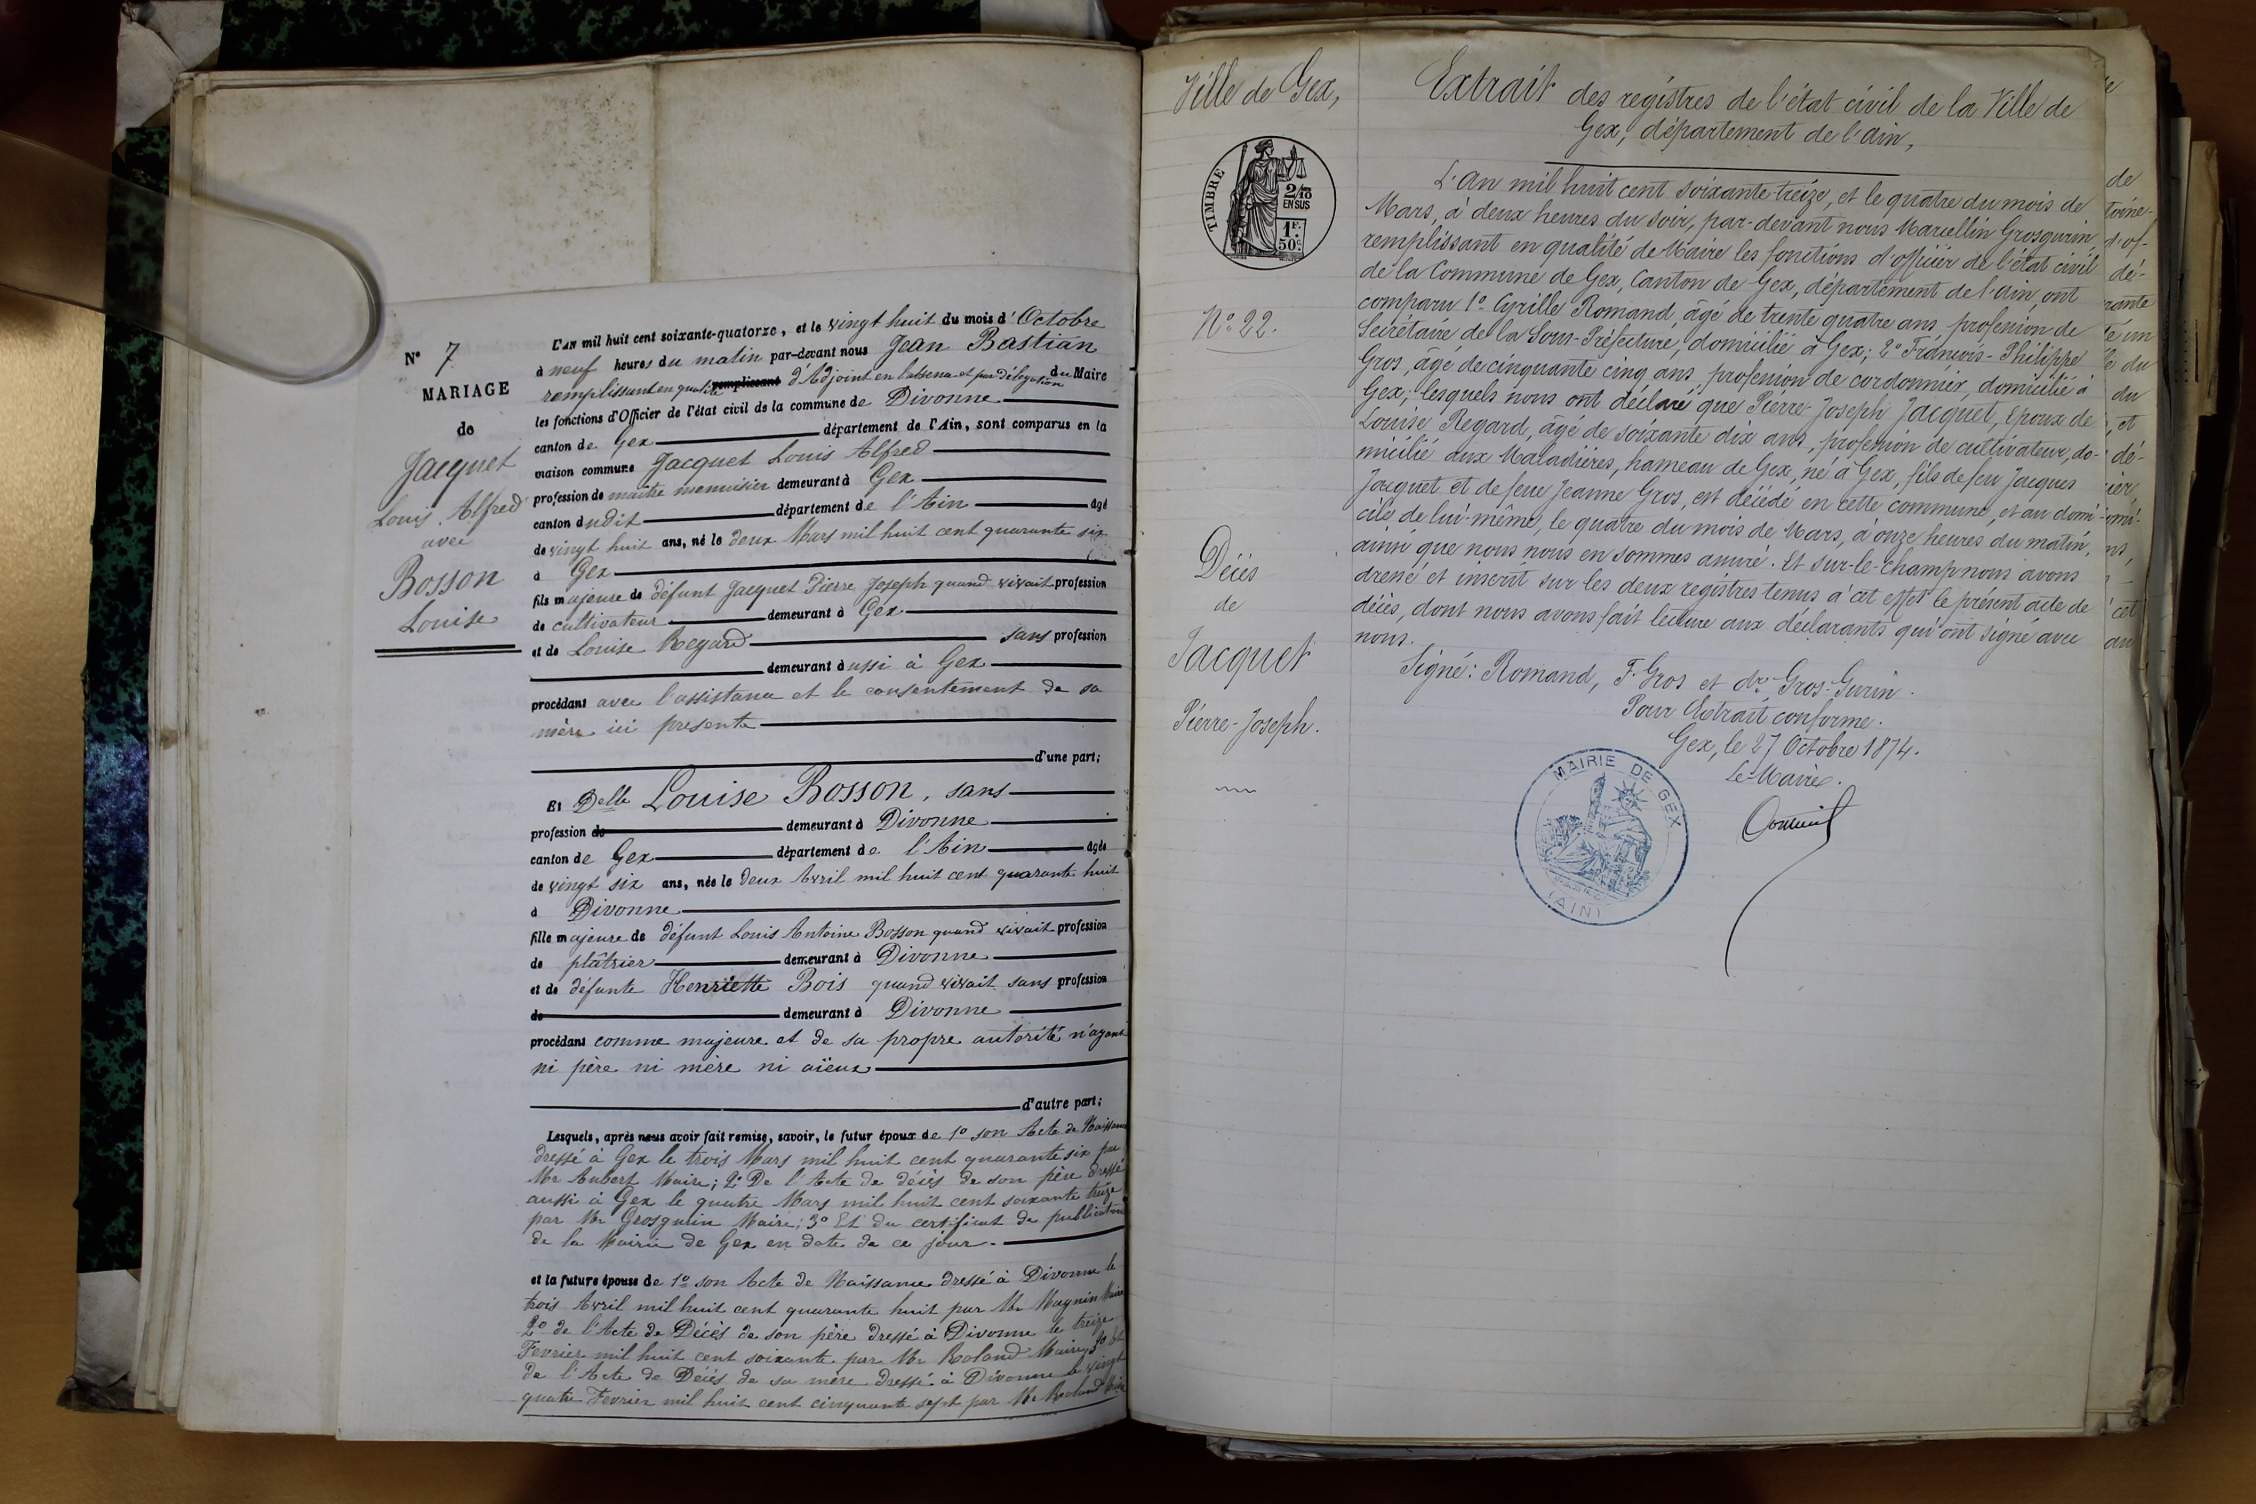 N° 7
MARIAGE
de
Jacquet
Louis Alfred
avec
Bosson
Louise
L'AN mil huit cent soixante-quatorze, et le vingt huit du mois d'Octobre
à neuf heures du matin par-devant nous Jean Bastian
remplissant en qualité remplissant d'Adjoint en l'absence et par délégation du Maire
les fonctions d'Officier de l'état civil de la commune de Divonne
canton de Gex département de l'Ain, sont comparus en la
maison commune Jacquet Louis Alfred
profession de maître menuisier demeurant à Gex
canton dudit département de l'Ain âgé
de vingt huit ans, né le deux Mars mil huit cent quarante six
à Gex
fils majeure de défunt Jacquet Pierre Joseph quand vivait profession
de cultivateur demeurant à Gex
et de Louise Regard sans profession
demeurant aussi à Gex
procédant avec l'assistance et le consentement de sa
mère ici presente
d'une part;
Et Delle Louise Bosson, sans
profession de demeurant à Divonne
canton de Gex département de l'Ain âgée
de vingt six ans, née le deux Avril mil huit cent quarante huit
à Divonne
fille majeure de défunt Louis Antoine Bosson quand vivait profession
de plâtrier demeurant à Divonne
et de défunte Henriette Bois quand vivait sans profession
de demeurant à Divonne
procédant comme majeure et de sa propre autorité n'ayant
ni père ni mère ni aïeux
d'autre part;
Lesquels, après nous avoir fait remise, savoir, le futur époux de 1° son Acte de Naissance
dressé à Gex le trois Mars mil huit cent quarante six par
Mr Aubert Maire; 2° De l'Acte de décès de son père dressé
aussi à Gex le quatre Mars mil huit cent soixante treize
par Mr Grosgurin Maire; 3° Et du certificat de publication
de la Mairie de Gex en date de ce jour.
et la future épouse de 1° son Acte de Naissance dressé à Divonne le
trois Avril mil huit cent quarante huit par Mr Magnin Maire
2° de l'Acte de Décès de son père dressé à Divonne le treize
Fevrier mil huit cent soixante par Mr Roland Maire, 3° Et
de l'Acte de Décès de sa mère dressé à Divonne le vingt
quatre Fevrier mil huit cent cinquante sept par Mr Roland Maire
Ville de Gex,
TIMBRE
2/10
EN SUS
1F.
50c
N° 22.
Décès
de
Jacquet
Pierre-Joseph.
Extrait des registres de l'état civil de la Ville de
Gex, département de l'Ain,
L'An mil huit cent soixante-treize, et le quatre du mois de
Mars, à deux heures du soir, par-devant nous Marcellin Grosgurin
remplissant en qualité de Maire les fonctions d'officier de l'état civil
de la Commune de Gex, Canton de Gex, département de l'Ain, ont
comparu 1° Cyrille Romand, âgé de trente quatre ans, profession de
Secrétaire de la Sous-Préfecture, domicilié à Gex; 2° François-Philippe
Gros, âgé de cinquante cinq ans, profession de cordonnier, domicilié à
Gex; lesquels nous ont déclaré que Pierre-Joseph Jacquet, Epoux de
Louise Regard, âgé de soixante dix ans, profession de cultivateur, do-
micilié aux Maladières, hameau de Gex, né à Gex, fils de feu Jacques
Jacquet et de feue Jeanne Gros, est décédé en cette commune, et au domi-
cile de lui-même, le quatre du mois de Mars, à onze heures du matin,
ainsi que nous nous en sommes assuré. Et sur-le-champ nous avons
dressé et inscrit sur les deux registres tenus à cet effet le présent acte de
décès, dont nous avons fait lecture aux déclarants qui ont signé avec
nous.
Signé: Romand, F. Gros et dr Gros-Gurin.
Pour Extrait conforme.
Gex, le 27 Octobre 1874.
Le Maire.
MAIRIE DE GEX
(AIN)